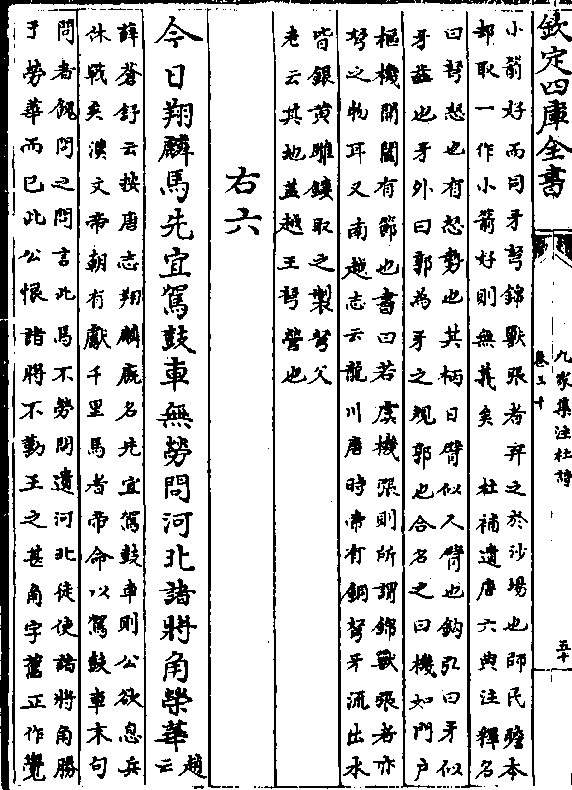 欽定四庫全書
九家集注杜詩
卷三十
五十
小箭好而同牙弩錦獸張者弃之於沙場也師民瞻本
却取一作小箭好則無義矣 杜補遺唐六典注釋名
曰弩怒也有怒勢也其柄曰臂似人臂也鈎弘曰牙似
牙齒也牙外曰郭為牙之規郭也合名之曰機如門户
樞機開闔有節也書曰若虞機張則所謂錦獸張者亦
弩之物耳又南越志云龍川唐時帝有銅弩牙流出水
皆銀黄雕鏤取之製弩父
老云其地葢越王弩營也
右六
今日翔麟馬先宜駕鼓車無勞問河北諸將角榮華 趙云
薛蒼舒云按唐志翔麟廐名先宜駕鼓車則公欲息兵
休戰矣漢文帝朝有獻千里馬者帝命以駕鼓車末句
問者餽問之問言此馬不勞問遺河北徒使諸將角勝
于勞華而已此公恨諸將不勤王之甚角字舊正作覺